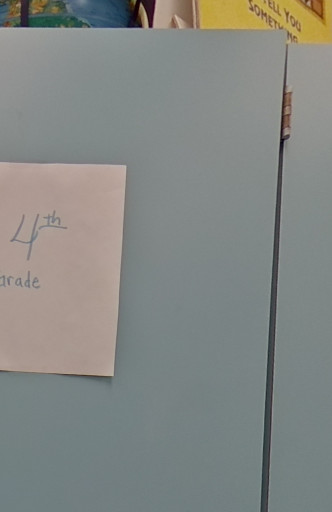 TELL YOU
SOMETHING
4th
grade